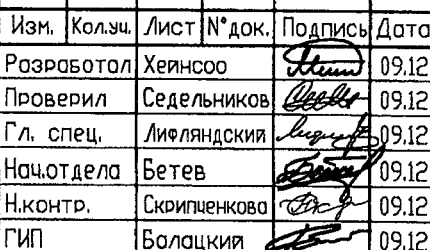 Изм. Кол.уч. Лист N°док. Подпись Дата
Разработал Хейнсоо 09.12
Проверил Седельников 09.12
Гл. спец. Лифляндский 09.12
Нач.отдела Бетев 09.12
Н.контр. Скрипченкова 09.12
ГИП Балацкий 09.12